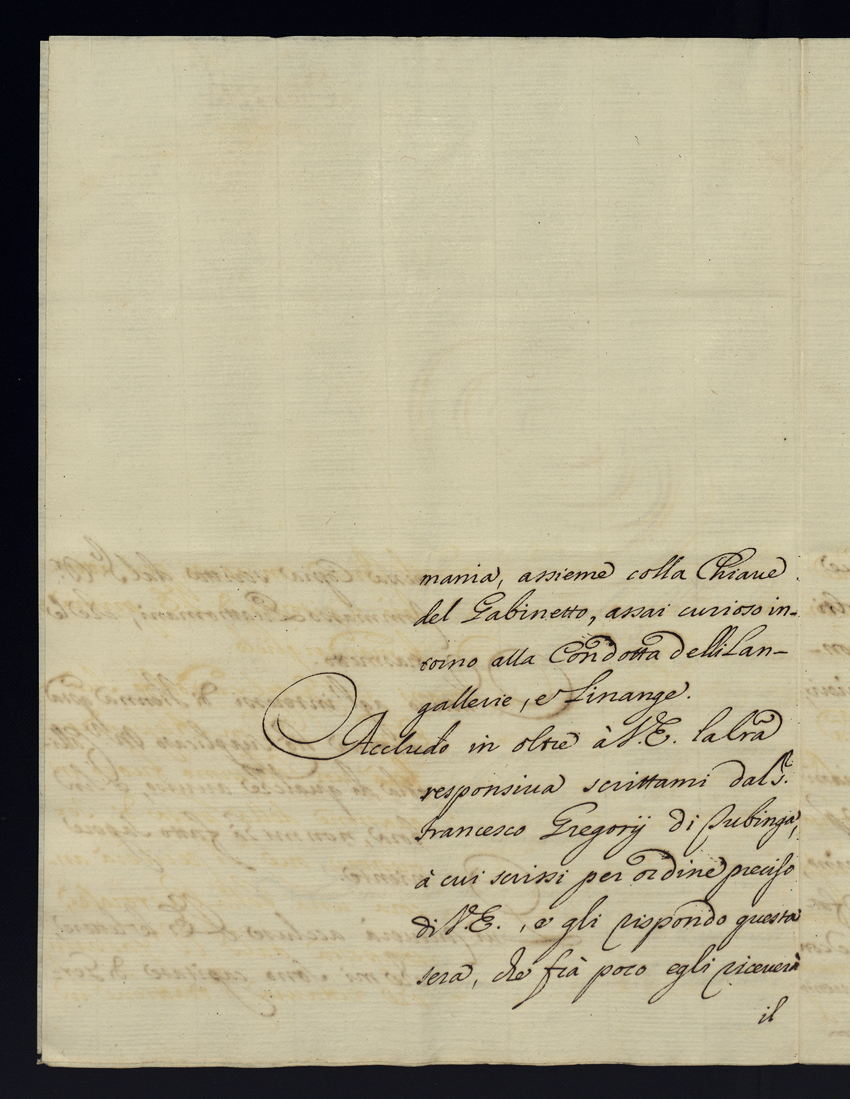 mania, assieme colla Chiave
del Gabinetto, assai curioso in-
torno alla Condotta delli Lan-
gallerie, e Linange.
Accludo in oltre à V.E. la lrã
responsiva scrittami dal S.r
Francesco Gregorij di Tubinga,
à cui scrissi per ordine preciso
di V.E., e gli rispondo questa
sera, che frà poco egli riceverà
il